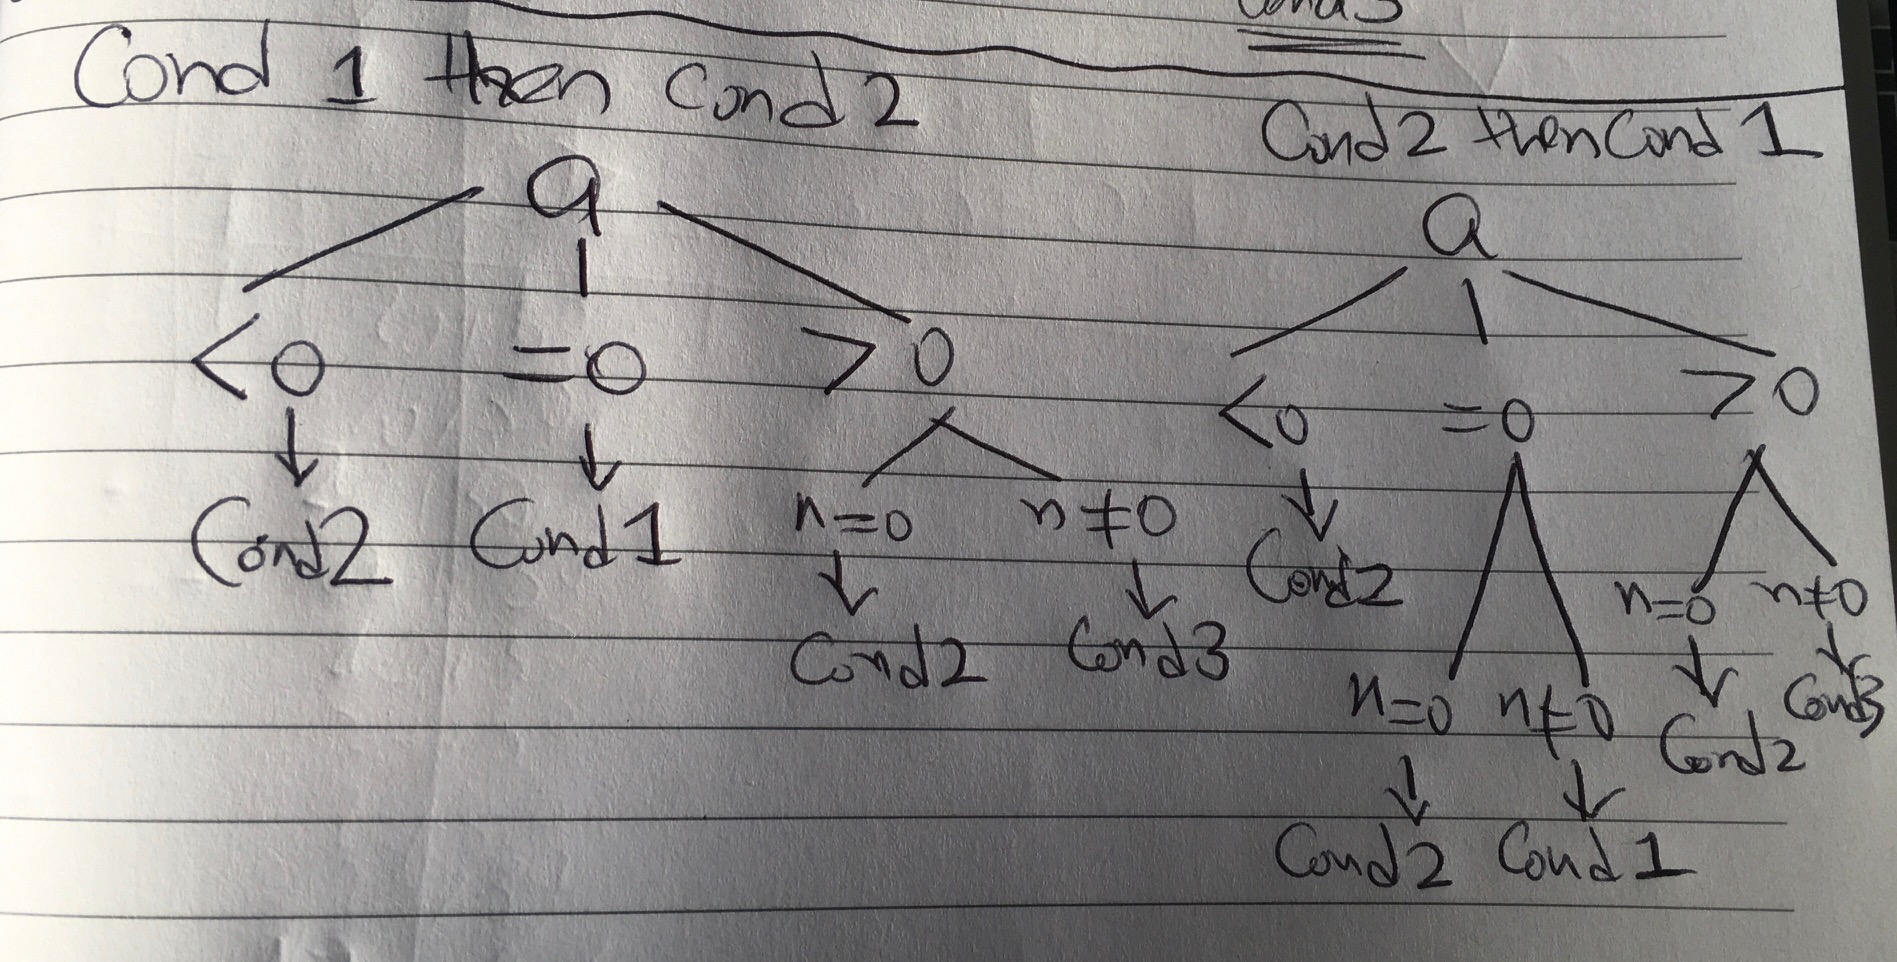 Cond 3
Cond 1 then Cond 2
a
<0 =0 >0
Cond2 Cond 1
n=0 n≠0
Cond2 Cond3
Cond2 then Cond 1
a
<0 =0 >0
Cond2
n=0 n≠0
Cond2 Cond3
n=0 n≠0
Cond2 Cond 1